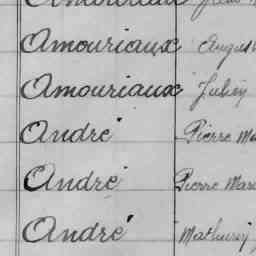 Amouriaux
Amouriaux Augus
Amouriaux Julien
André Pierre Ma
André Pierre Mar
André Mathurin